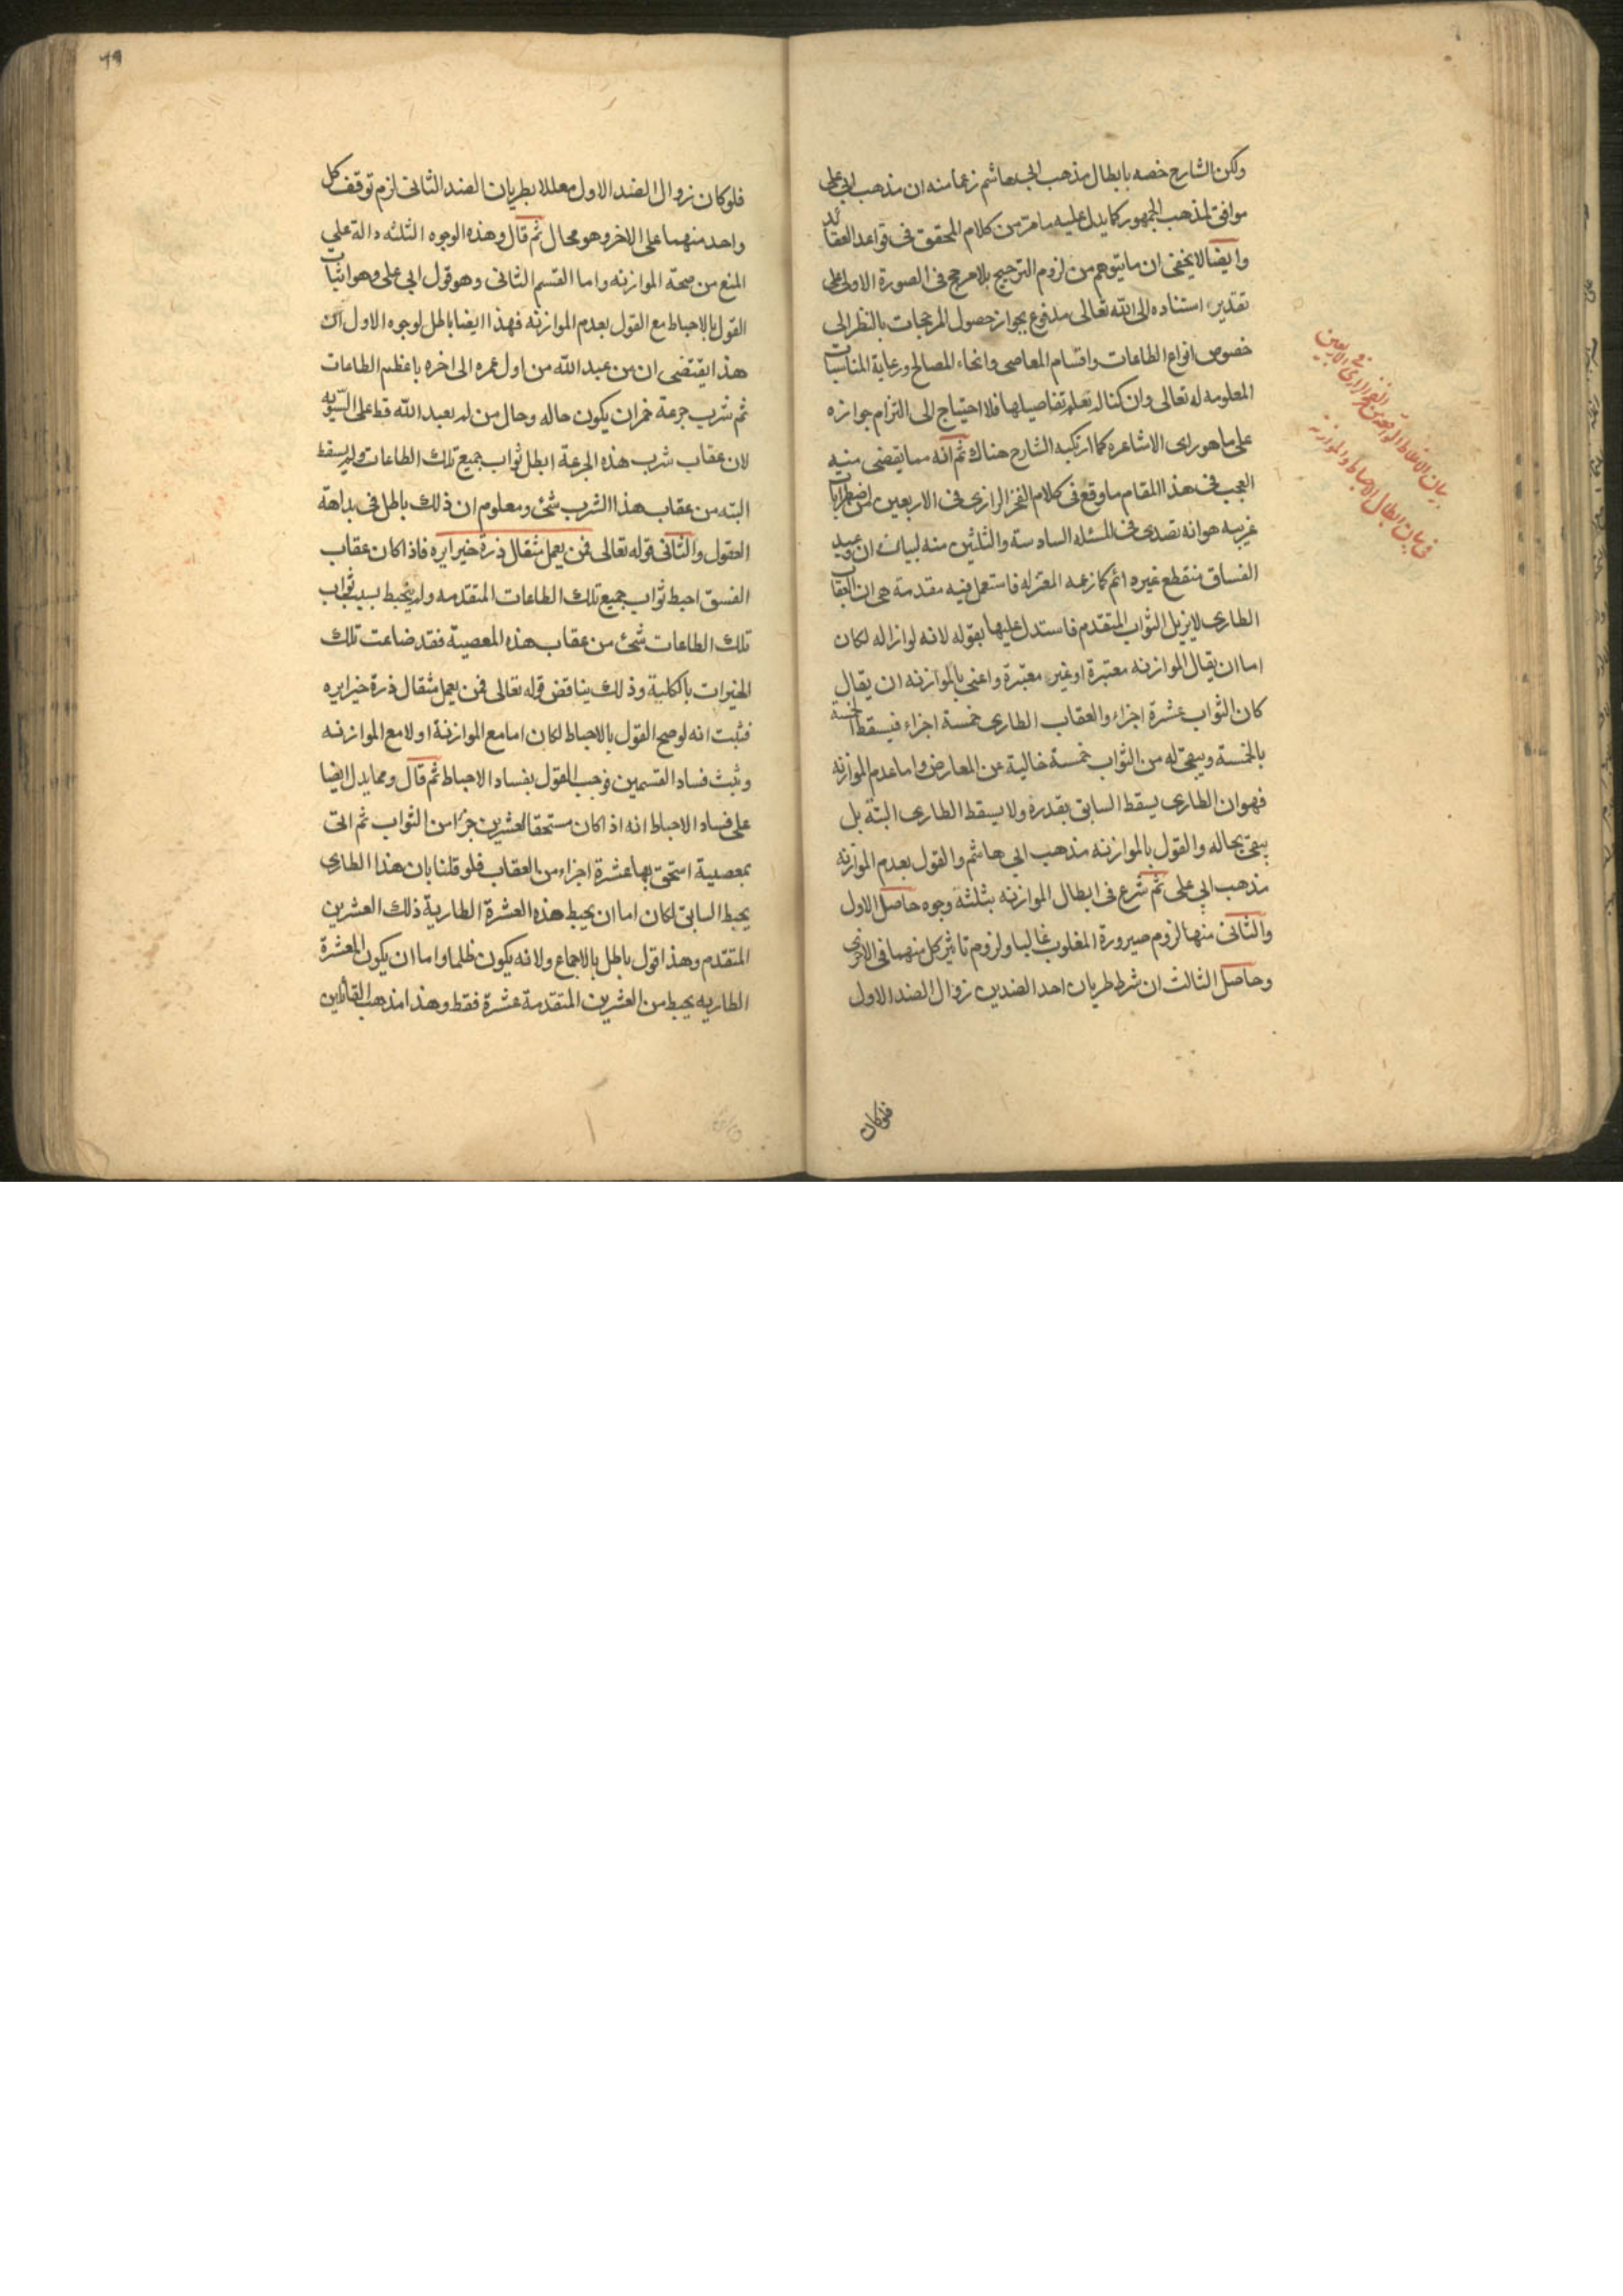 ولكن الشارح خصه بابطال مذهب ابى هاشم زعما منه ان مذهب ابى على
موافق لمذهب الجمهور كما يدل عليه ما مر من كلام المحقق فى قواعد العقائد
وايضا لا يخفى ان ما يتوهم من لزوم الترجيح بلا مرجح فى الصورة الاولى على
تقدير استناده الى الله تعالى مدفوع بجواز حصول المرجحات بالنظر الى
خصوص انواع الطاعات واقسام المعاصى وانحاء المصالح ورعاية المناسبات
المعلومه له تعالى وان كنا لم نعلم تفاصيلها فلا احتياج الى التزام جوازه
على ما هو راى الاشاعره كما ارتكبه الشارح هناك ثم انه مما يقضى منه
العجب فى هذا المقام ما وقع فى كلام الفخر الرازى فى الاربعين من اضطرابات
غريبه هو انه تصدى فى المسئله السادسة والثلثين منه لبيان ان وعيد
الفساق منقطع غير دائم كما زعمه المعتزله فاستعمل فيه مقدمة هى ان العقاب
الطارى لا يزيل الثواب المتقدم فاستدل عليها بقوله لانه لو ازاله لكان
اما ان يقال الموازنه معتبرة او غير معتبرة واعنى بالموازنه ان يقال
كان الثواب عشرة اجزاء والعقاب الطارى خمسة اجزاء فيسقط الخمسة
بالخمسة ويبقى له من الثواب خمسة خالية عن المعارض واما عدم الموازنه
فهو ان الطارى يسقط السابق بقدره ولا يسقط الطارى البتة بل
يبقى بحاله والقول بالموازنه مذهب ابى هاشم والقول بعدم الموازنه
مذهب ابى على ثم شرع فى ابطال الموازنه بثلثة وجوه حاصل الاول
والثانى منها لزوم صيرورة المغلوب غالبا ولزوم تاثير كل منهما فى الاخرى
وحاصل الثالث ان شرط طريان احد الضدين زوال الضد الاول
فلوكان
بيان الاغلاط الواقعة من الفخر الرازى فى الاربعين
فى بيان ابطال الاحباط والموازنه
٦٩
فلو كان زوال الضد الاول معللا بطريان الضد الثانى لزم توقف كل
واحد منهما على الاخر وهو محال ثم قال وهذه الوجوه الثلثه دالة على
المنع من صحة الموازنه واما القسم الثانى وهو قول ابى على وهو اثبات
القول بالاحباط مع القول بعدم الموازنه فهذا ايضا باطل لوجوه الاول ان
هذا يقتضى ان من عبد الله من اول عمره الى اخره باعظم الطاعات
ثم شرب جرعة خمر ان يكون حاله وحال من لم يعبد الله قط على السّويه
لان عقاب شرب هذه الجرعة ابطل ثواب جميع تلك الطاعات ولم يسقط
البته من عقاب هذا الشرب شئ ومعلوم ان ذلك باطل فى بداهة
العقول والثانى قوله تعالى فمن يعمل مثقال ذرة خيرا يره فاذا كان عقاب
الفسق احبط ثواب جميع تلك الطاعات المتقدمه ولم ينحبط بسبب ثواب
تلك الطاعات شئ من عقاب هذه المعصية فقد ضاعت تلك
الخيرات بالكلية وذلك يناقض قوله تعالى فمن يعمل مثقال ذرة خيرا يره
فثبت انه لو صح القول بالاحباط لكان اما مع الموازنة او لا مع الموازنه
وثبت فساد القسمين فوجب القول بفساد الاحباط ثم قال ومما يدل ايضا
على فساد الاحباط انه اذا كان مستحقا لعشرين جزءا من الثواب ثم اتى
بمعصية استحق بها عشرة اجزاء من العقاب فلو قلنا بان هذا الطارى
يحبط السابق لكان اما ان يحبط هذه العشرة الطارية ذلك العشرين
المتقدم وهذا قول باطل بالاجماع ولانه يكون ظلما واما ان يكون العشرة
الطاريه يحبط من العشرين المتقدمة عشرة فقط وهذا مذهب القائلين